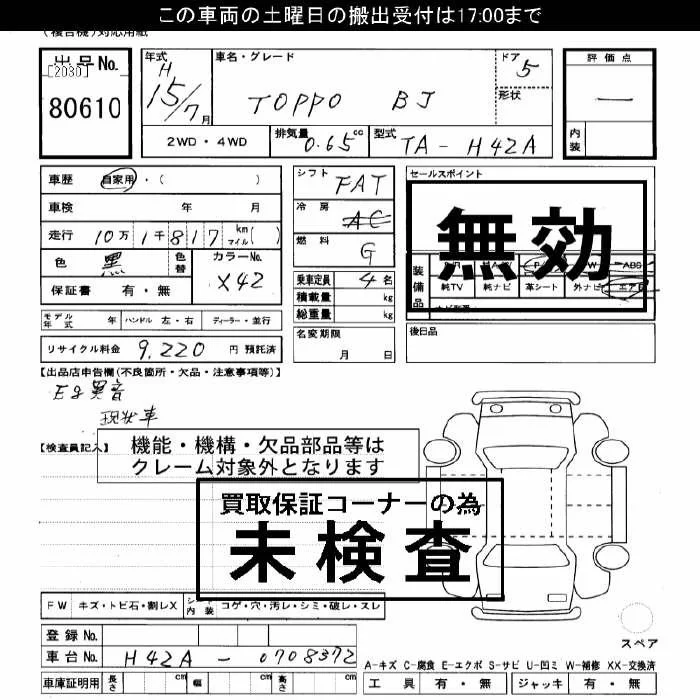 この車両の土曜日の搬出受付は17:00まで
(複合機)対応用紙
出品No.
[2030]
80610
年式
H
15/7 月
車名・グレード
TOPPO BJ
ドア
5
形状
評価点
—
内装
2WD・4WD
排気量 0.65 cc
型式 TA-H42A
車歴 自家用・( )
車検 年 月
走行 10万1千817 km マイル( )
色 黒
色替
カラーNo.
X42
保証書 有・無
シフト
FAT
冷房
AC
燃料
G
乗車定員 4 名
積載量 kg
総重量 kg
セールスポイント
無効
装備品
ABS
純TV 純ナビ 革シート 外ナビ エアB
モデル年式 年 ハンドル 左・右 ディーラー・並行
名変期限
月 日
後日品
リサイクル料金 9,220 円 預託済
【出品店申告欄(不良箇所・欠品・注意事項等)】
E/g異音
現状車
【検査員記入】
機能・機構・欠品部品等は
クレーム対象外となります
買取保証コーナーの為
未検査
FW キズ・トビ石・割レX
シート内装 コゲ・穴・汚レ・シミ・破レ・スレ
登録No.
車台No. H42A-0708372
車庫証明用 長さ cm 幅 cm 高さ cm
スペア
A-キズ C-腐食 E-エクボ S-サビ U-凹ミ W-補修 XX-交換済
工具 有・無 ジャッキ 有・無